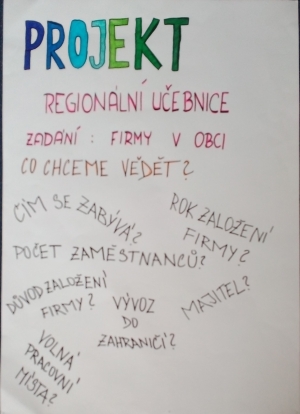 PROJEKT
REGIONÁLNÍ UČEBNICE
ZADÁNÍ : FIRMY V OBCI
CO CHCEME VĚDĚT?
ČÍM SE ZABÝVÁ?
ROK ZALOŽENÍ
FIRMY?
POČET ZAMĚSTNANCŮ?
DŮVOD ZALOŽENÍ
FIRMY?
VÝVOZ
DO
ZAHRANIČÍ?
MAJITEL?
VOLNÁ
PRACOVNÍ
MÍSTA?